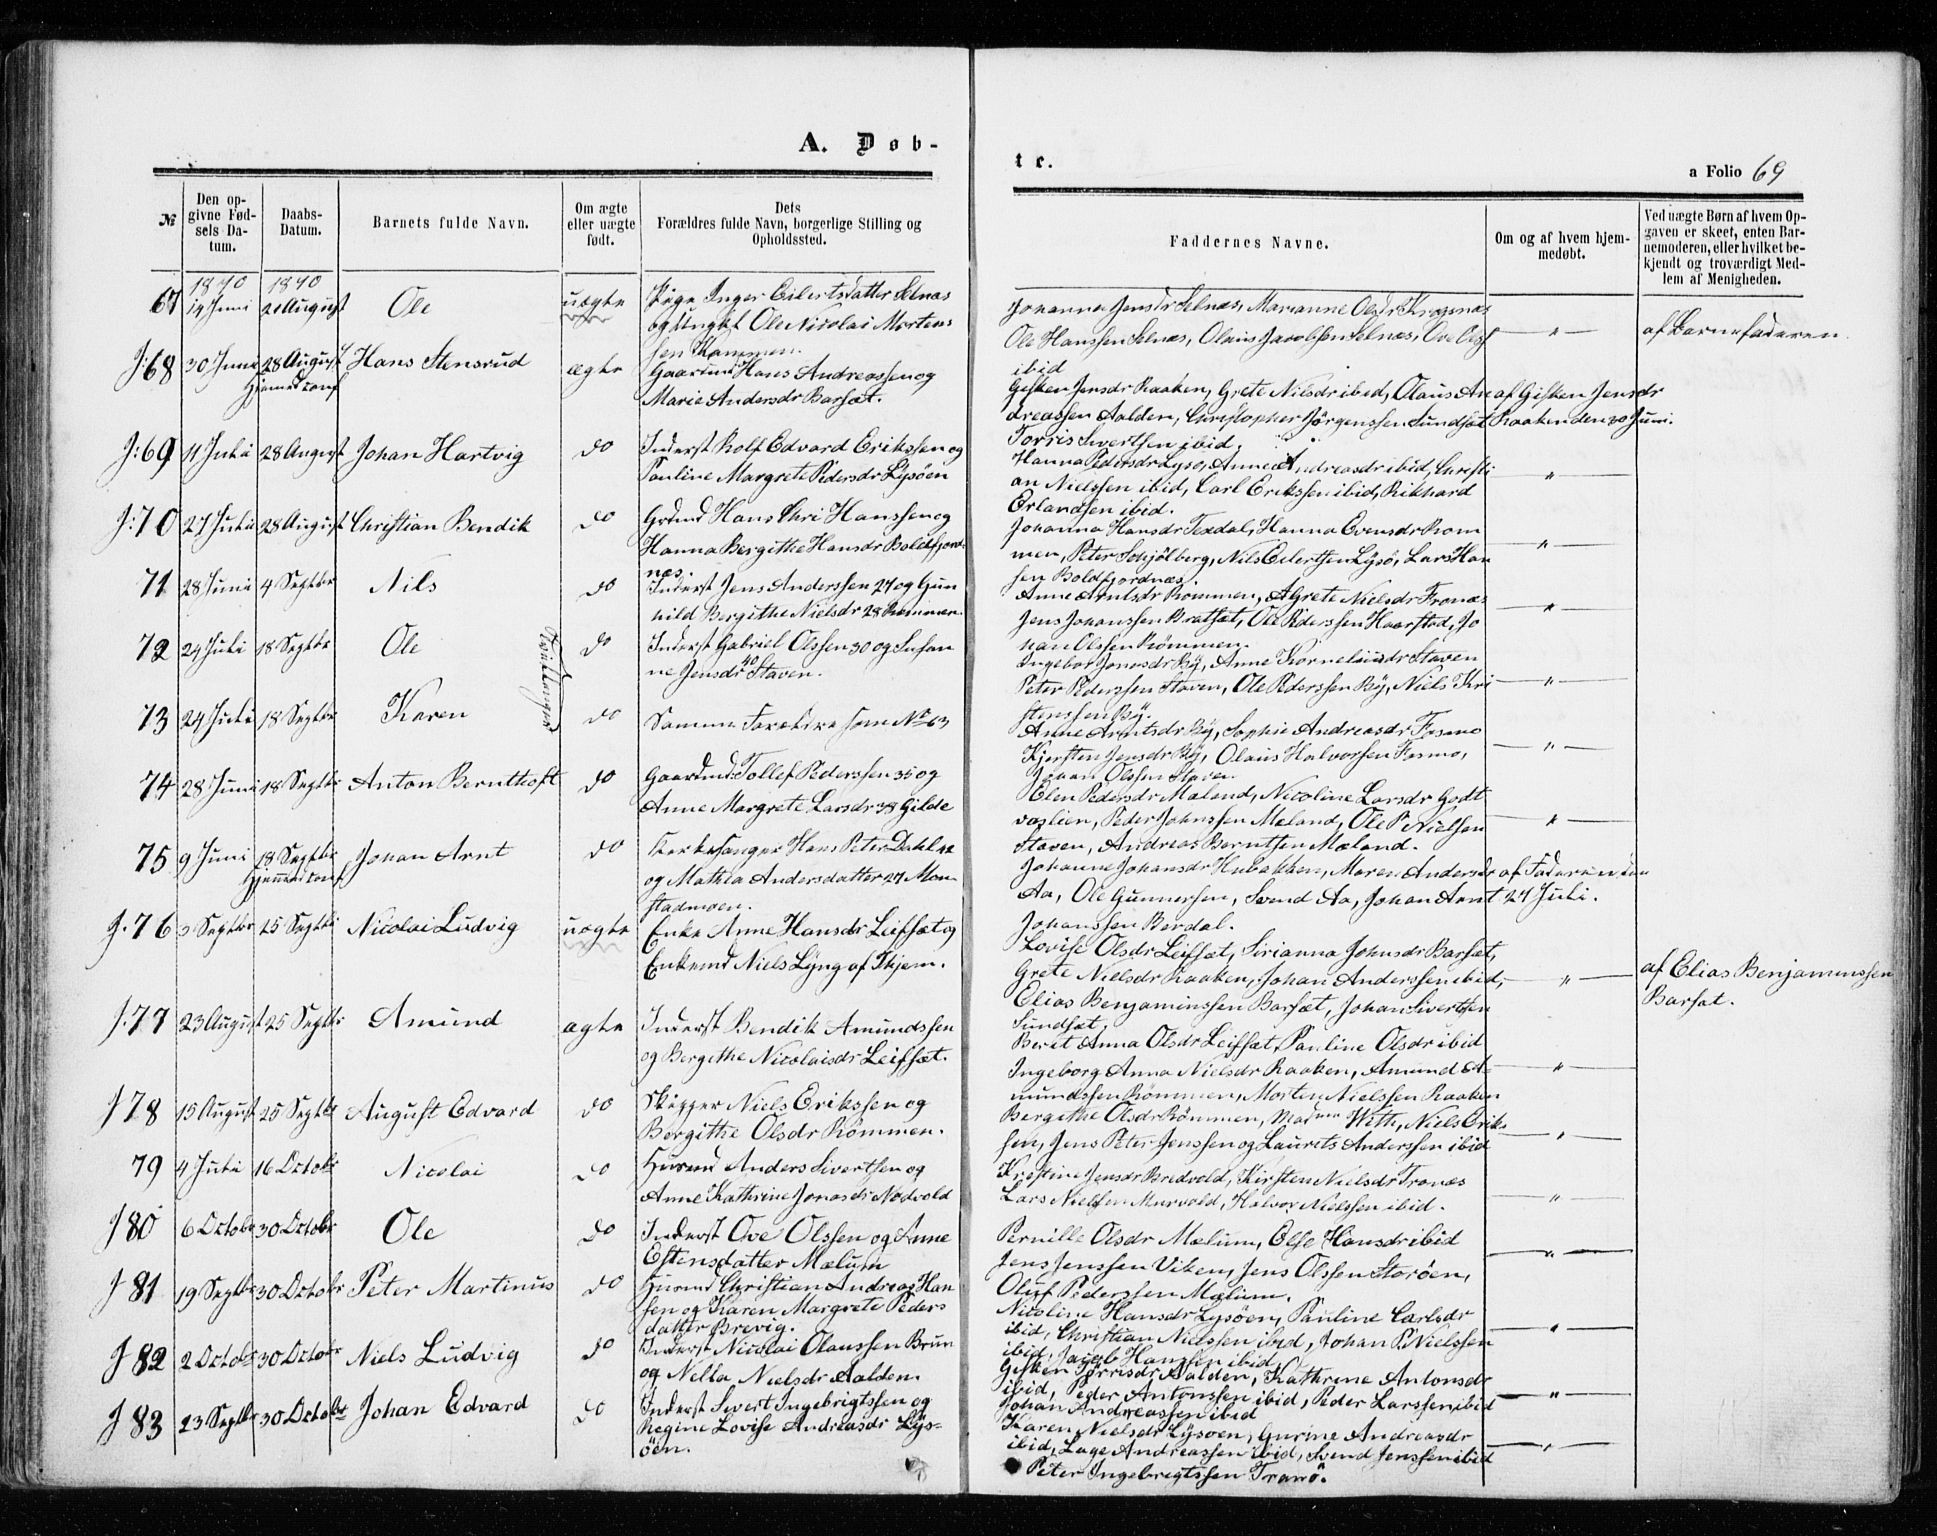 A. Døb-
te.
a Folio 69
№
Den opgivne Fødsels Datum.
Daabs-Datum.
Barnets fulde Navn.
Om ægte eller uægte født.
Dets Forældres fulde Navn, borgerlige Stilling og Opholdssted.
Faddernes Navne.
Om og af hvem hjemmedøbt.
Ved uægte Børn af hvem Opgaven er skeet, enten Barnemoderen, eller hvilket bekjendt og troværdigt Medlem af Menigheden.
1870 1870
67 14 Juni 21 August Ole uægte Pige Inger Eilertsdatter Selnæs
og Ungkl Ole Nicolai Mortens
sen
Johanna Jensdr Selnæs, Marianne Olsdr
Ole Hanssen Selnæs, Olaus Jacobsen Selnæs, Ove
ibid
"
af Barnefaderen
J:68 30 Juni 28 August Hans Stensrud ægte Gaardmd Hans Andreassen og
Hjemme conf
Marie Andersdr Barsæt.
Gisken Jensdr Raaken, Grete Nilsdr ibid, Olaus An
dreassen Aalden, Christopher Jörgenssen Sundsæt
Torris Sivertsen ibid.
af Gisken Jensdr
Raaken den 30 Juni.
J:69 11 Juli 28 August Johan Hartvig do Inderst Rolf Edvard Erikssen og
Pauline Margrete Pedersdr Lysöen
Hanna Pedersdr Lysö, Anne Andreasdr ibid, Christi
an Nielssen ibid, Carl Erikssen ibid, Rikhard
Erlandsen ibid.
"
J:70 27 Juli 28 August Christian Bendik do Grdmd Hans Chri Hanssen og
Hanna Bergithe Hansdr Boldfjord
næs.
Johanna Hansdr Texdal, Hanna Evensdr Röm
men, Peter Schjölberg, Nils Eilertsen Lysö, Lars Han
sen Boldfjordnæs.
"
71 28 Juni 4 Septbr Nils do Inderst Jens Anderssen 27 og Gun
hild Bergithe Nielsdr 28 Römmen.
Anne Arntsdr Römmen, A Grete Nielsdr Tranæs
Jens Johanssen Bratsæt, Ole Pederssen Haarstad, Jo
han Olssen Römmen.
"
72 24 Juli 18 Septbr Ole do Inderst Gabriel Olssen 30 og Susan
ne Jensdr 40 Staven.
Tvillinger
Ingebor Jonasdr By, Anne Korneliusdr Staven
Peter Pederssen Staven, Ole Pederssen By, Niels Kri
stenssen By.
"
73 24 Juli 18 Septbr Karen do Samme Forældre som No 63
Anne Arntsdr By, Sophie Andreasdr Fosmo
Kjersten Jensdr By, Olaus Halvorsen Fosmo,
Johan Olssen Staven
"
74 28 Juni 18 Septbr Anton Berntheft do Gaardmd Tollef Pederssen 35 og
Anne Margrete Larsdr 38 Gilde
Elen Pedersdr Mæland, Nicoline Larsdr Godt
vaslien, Peder Johnssen Mæland, Ole P Nielsen
Staven, Andreas Berntsen Mæland.
"
75 9 Juni 18 Septbr Johan Arnt do Kirkesanger Hans Peter Dahl
Hjemme conf
og Mathea Andersdatter 27 Mon
stadmoen.
Johanne Johansdr Hubakken, Maren Andersdr
Aa, Ole Gunnersen, Svend Aa, Johan Arnt
Johanssen Berdal.
af Faderen den
24 Juli.
J.76 3 Septbr 25 Septbr Nicolai Ludvig uægte Enke Anne Hansdr Leifsæt og
Enkemd Niels Lyng af Stjern.
Lovise Olsdr Leifsæt, Sirianna Johnsdr Barsæt,
Grete Nielsdr Raaken, Johan Anderssen ibid,
Elias Benjaminssen Barsæt, Johan Sivertsen
Sundsæt.
"
af Elias Benjaminssen
Barsæt.
J.77 23 August 25 Septbr Amund ægte Inderst Bendik Amundssen
og Bergithe Nicolaisdr Leifsæt.
Beret Anna Olsdr Leifsæt, Pauline Olsdr ibid
Ingeborg Anna Nielsdr Raaken, Amund A-
mundssen Römmen, Morten Nielssen Raaken
"
J 78 15 August 25 Septbr August Edvard do Skipper Niels Erikssen og
Bergithe Olsdr Römmen.
Bergithe Olsdr Römmen, Madmm Witte, Niels Erik-
sen, Jens Peter Jenssen og Laurits Anderssen ibid
"
79 4 Juli 16 Octobr Nicolai do Husmd Anders Sivertsen og
Anne Kathrine Jonasdr Nödvold
Kristine Jensdr Bredvold, Kirsten Nielsdr Tranæs
Lars Nielsen Murvold, Halvor Nielssen ibid.
"
J 80 6 Octobr 30 Octobr Ole do Inderst Ove Olssen og Anne
Estensdatter Mælum
Pernille Olsdr Mælum, Else Hansdr ibid
Jens Jenssen Viken, Jens Olssen Storöen,
Oluf Pederssen Mælum.
"
J 81 19 Septbr 30 Octobr Peter Martinus do Husmd Christian Andreas Han
sen og Karen Margrete Peders
datter Brevig.
Nicoline Hansdr Lysöen, Pauline Carlsdr
ibid, Christian Nielssen ibid, Johan P. Nielssen
ibid, Jacob Hanssen ibid.
"
J 82 2 Octobr 30 Octobr Niels Ludvig do Inderst Nicolai Olaussen Brun
og Nella Nielsdr Aalden.
Gisken Torrisdr Aalden, Kathrine Antonsdr
ibid, Peder Antonssen ibid, Peder Larssen ibid
Johan Andreassen ibid
"
J 83 23 Septbr 30 Octobr Johan Edvard do Inderst Sivert Ingebrigtssen og
Regine Lovise Andreasdr Lys-
öen.
Karen Nielsdr Lysöen, Gurine Andreasdr
ibid, Lage Andreassen ibid, Svend Jenssen ibid
Peter Ingebrigtssen Tranö.
"